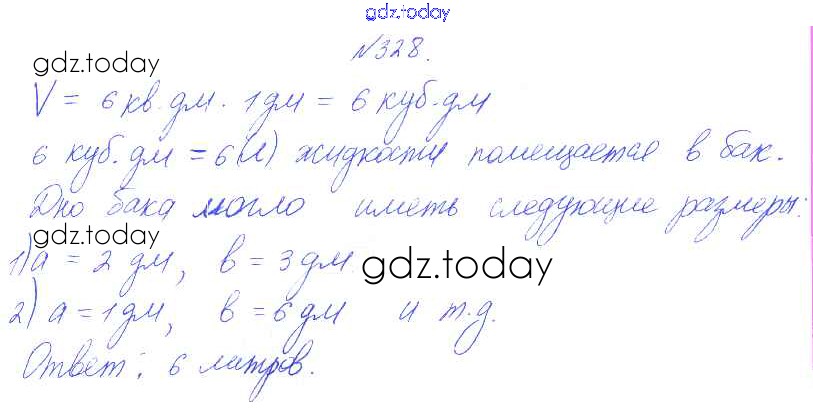 gdz.today
№328.
gdz.today
V = 6 кв.дм · 1дм = 6 куб.дм
6 куб.дм = 6(л) жидкости помещается в бак.
Дно бака могло иметь следующие размеры:
1) а = 2 дм, в = 3 дм gdz.today
2) а = 1 дм, в = 6 дм и т.д.
gdz.today
Ответ: 6 литров.